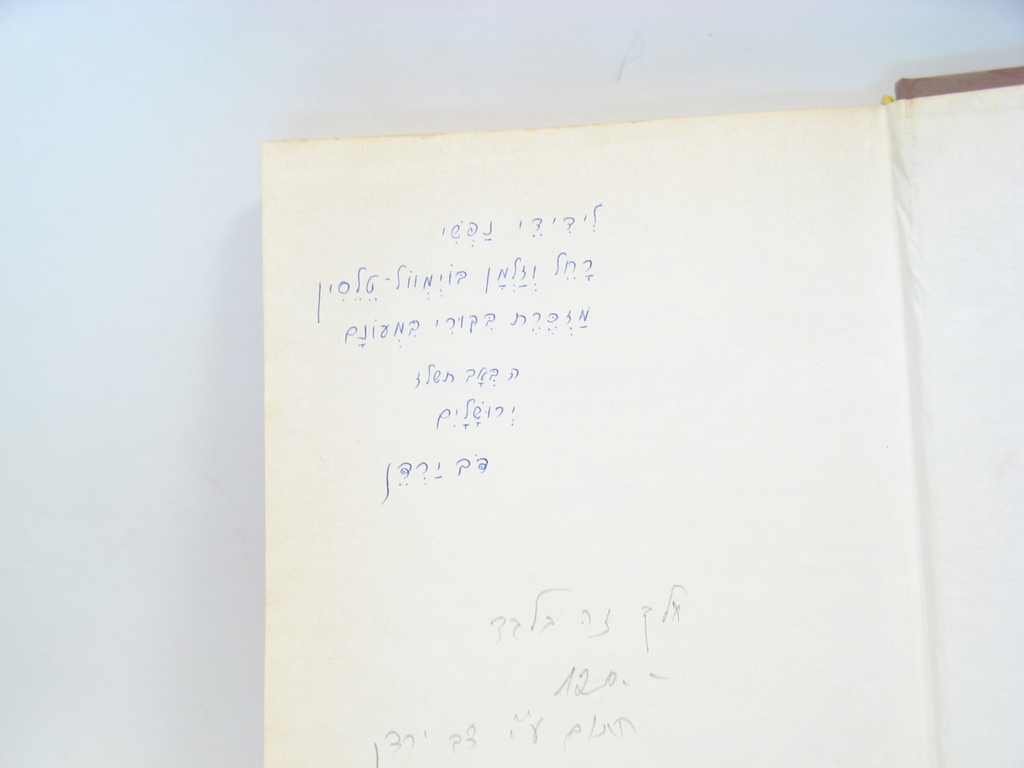 לִידִידֵי נַפְשִׁי
רָחֵל וְזַלְמָן בּוֹיְמְווֹל-טֶלֵסִין
מַזְכֶּרֶת בִּקּוּרִי בִּמְעוֹנָם
ה בְּאָב תשלז
יְרוּשָׁלָיִם
דֹּב יַרְדֵּן
חלק זה בלבד
120.-
חתום ע"י דב ירדן